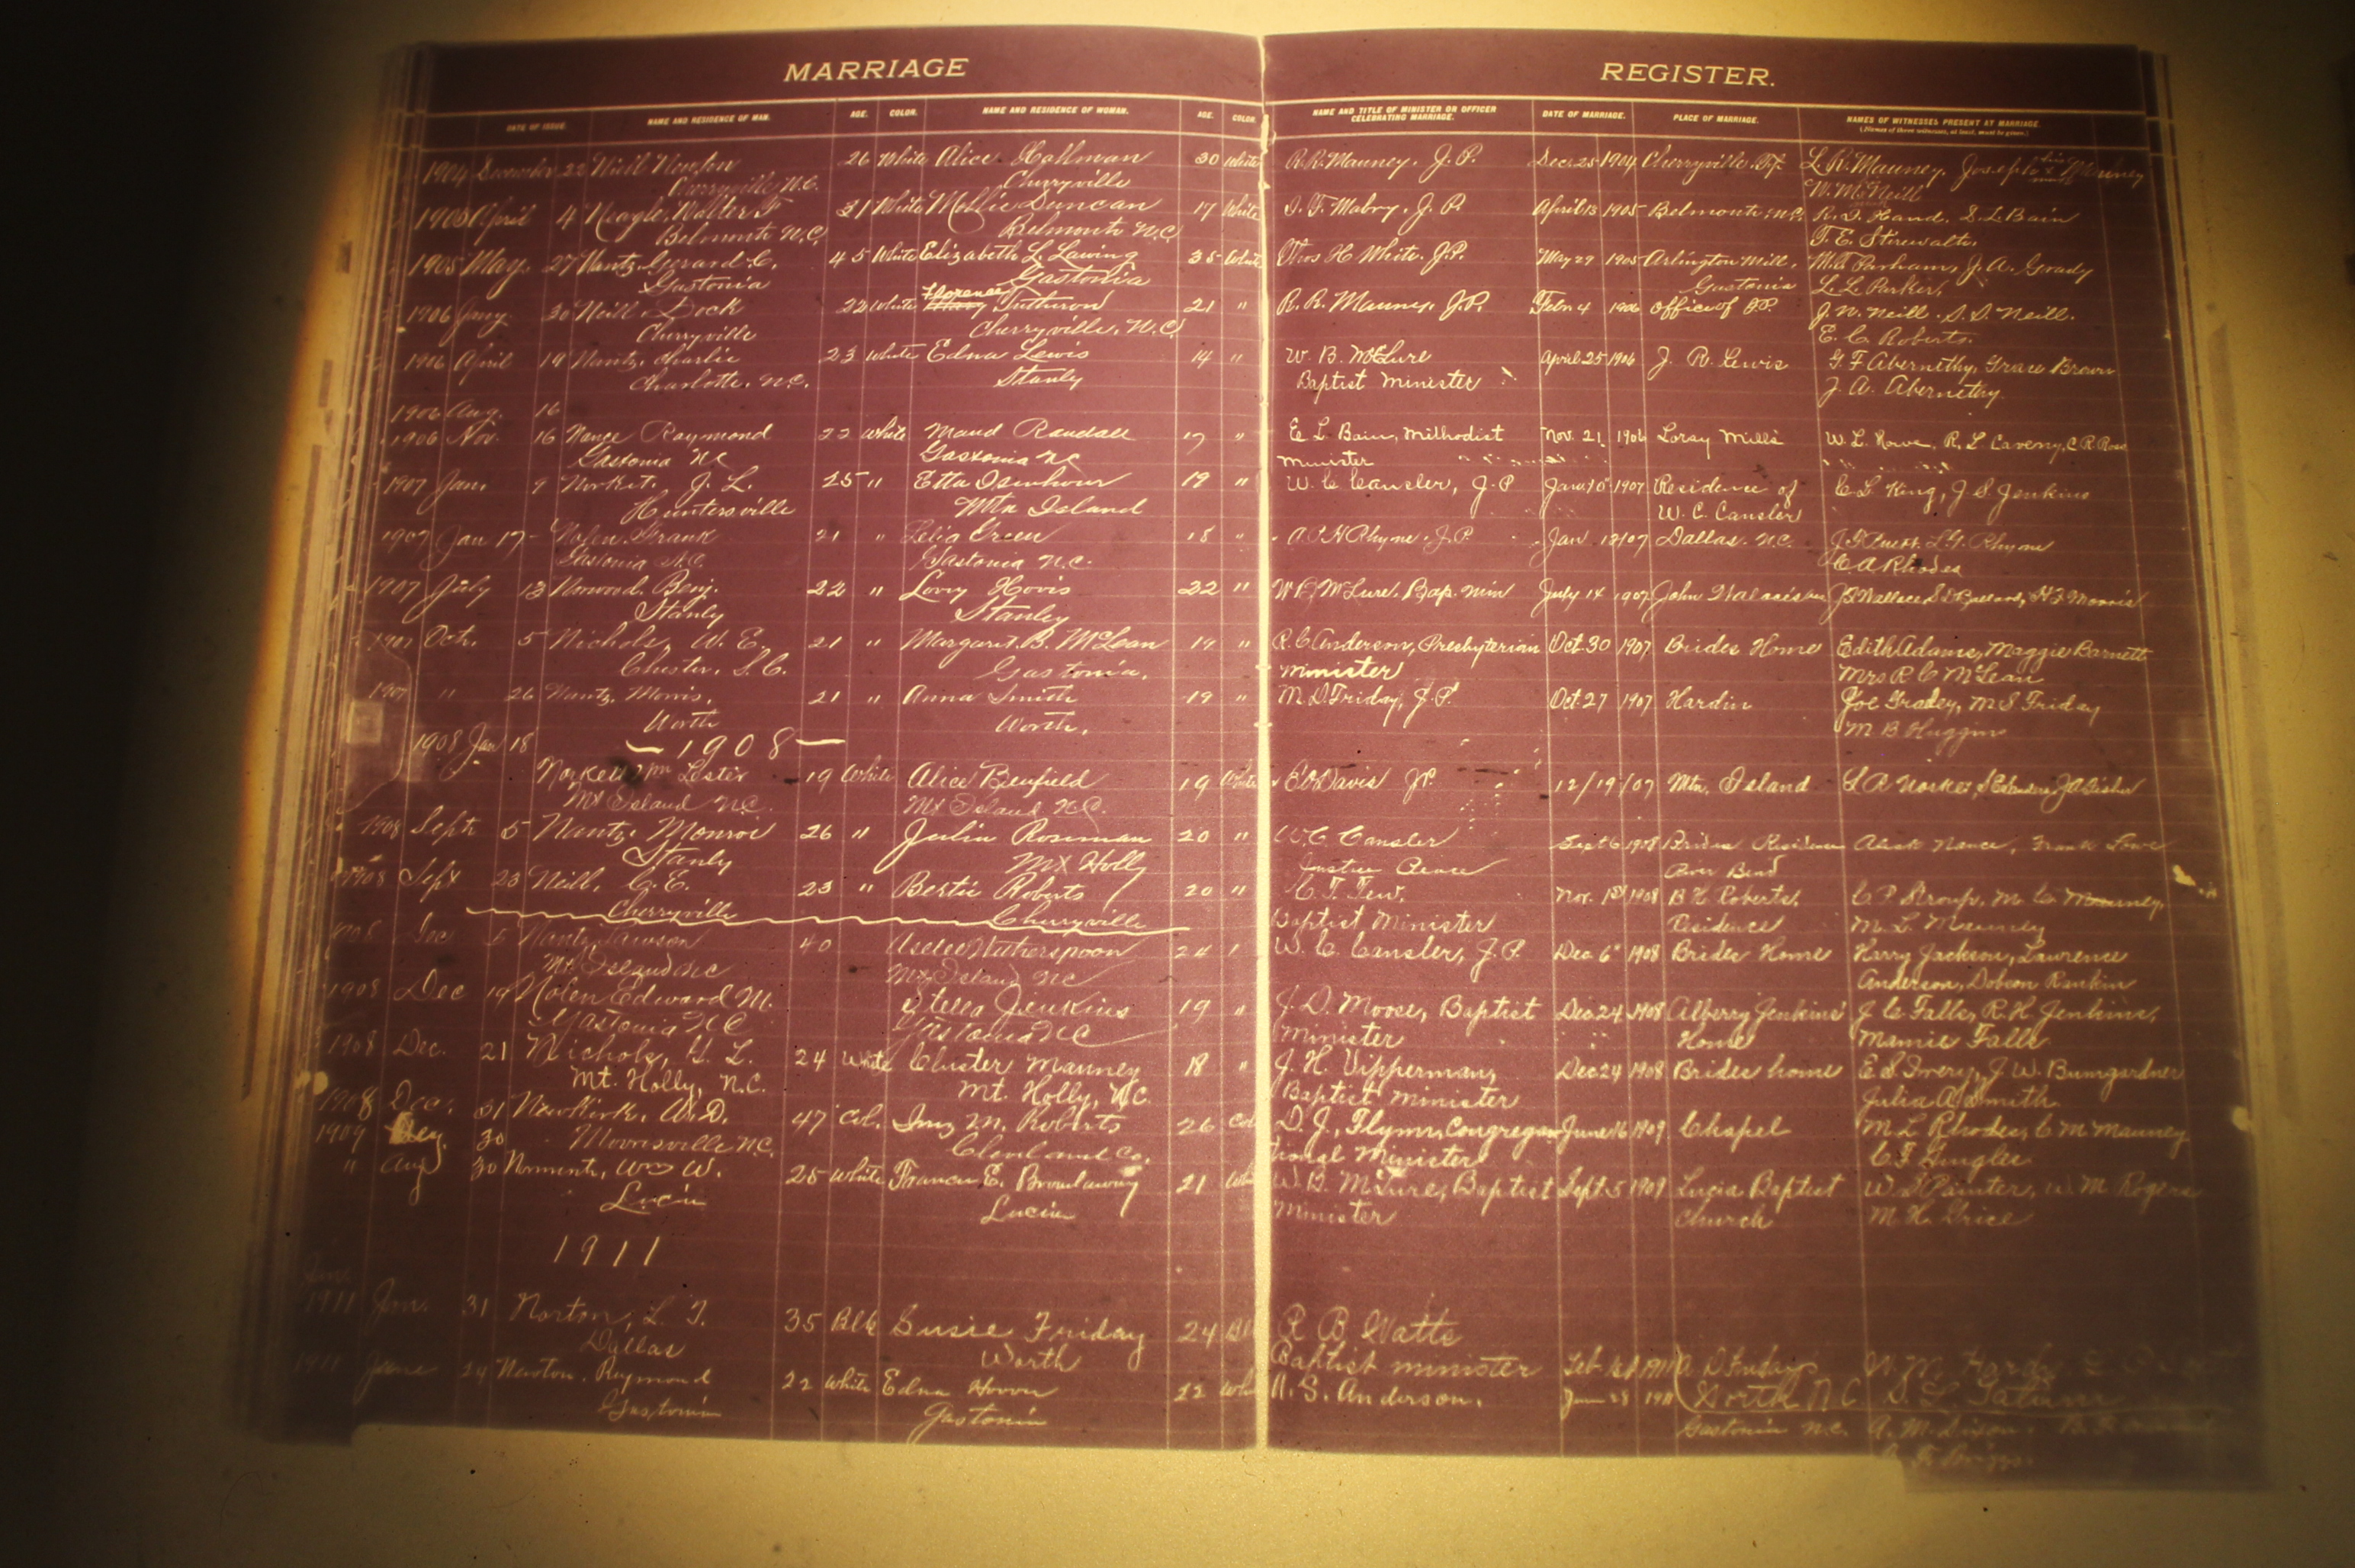 MARRIAGE REGISTER.
DATE OF ISSUE. NAME AND RESIDENCE OF MAN. AGE. COLOR. NAME AND RESIDENCE OF WOMAN. AGE. COLOR. NAME AND TITLE OF MINISTER OR OFFICER CELEBRATING MARRIAGE. DATE OF MARRIAGE. PLACE OF MARRIAGE. NAMES OF WITNESSES PRESENT AT MARRIAGE.
(Names of three witnesses, at least, must be given.)
1904 December 22 Neill Newton 26 White Alice Hallman 30 White R. R. Mauney, J. P. Dec. 25 1904 Cherryville L. R. Mauney, Joseph his x mark Mauney
Cherryville N.C. Cherryville W. McNeill
1905 April 4 Neagle, Walter F 21 White Mollie Duncan 17 White Mabry, J. P. April 13 1905 Belmont N.C. Hand, S. L. Bain
Belmont N.C. Belmont N.C. Stirewalt
1905 May 27 Nantz 45 White Elizabeth L. Lawing 35 White H. White, J.P. May 29 1905 Arlington Mill, Parham, J. A. Grady
Gastonia Gastonia Gastonia L. L. Parker,
1906 Jany 30 Neill Dock 22 White Florence 21 " R. R. Mauney, J.P. Feb 4 1906 office of J.P. J. W. Neill. S. D. Neill.
Cherryville Cherryville, N.C. E. C. Roberts.
1906 April 14 Nantz, Charlie 23 White Edna Lewis 14 " W. B. McClure April 25 1906 J. R. Lewis G. F. Abernethy, Grace Brown
Charlotte, N.C. Stanly Baptist Minister J. A. Abernethy.
1906 Aug. 16
1906 Nov. 16 Nance Raymond 22 White Maud Randall 17 " E. L. Bain, Methodist Nov. 21 1906 Loray Mills W. L. Rowe, R. L. Caveny, C. R. Ross
Gastonia NC Gastonia NC Minister
1907 Jan. 9 Norket, J. L. 25 " Etta Isenhour 19 " W. C. Cansler, J. P. Jan. 10 1907 Residence of E. L. King, J. S. Jenkins
Huntersville Mtn Island W. C. Cansler
1907 Jan 17 Nolen Frank 21 " Lelia Green 18 " Rhyne, J. P. Jan 07 Dallas N.C. L. G. Rhyne
Gastonia N.C. Gastonia N.C. C. A. Rhodes
1907 July 13 Norwood, Benj. 22 " Lovy Hovis 22 " W. B. McLure, Bap. Min July 14 1907 John Wallace, S. D. Ballard, H. F. Morris
Stanly Stanly
1907 Oct. 5 Nichols, W. E. 21 " Margaret B. McLean 19 " R. C. Anderson, Presbyterian Oct 30 1907 Brides Home Edith Adams, Maggie Barnett
Chester, S.C. Gastonia. Minister Mrs R C McLean
1907 " 26 Nantz, Morris, 21 " Anna Smith 19 " M. D. Friday, J. P. Oct. 27 1907 Hardin Joe Gradey, M S Friday
Worth Worth. M B Huggins
1908 Jan 18 — 1908 —
Norkett Wm Lester 19 White Alice Benfield 19 White Davis JP. 12/19/07 Mtn. Island
Mt Island N.C. Mt Island N.C.
1908 Sept 5 Nantz, Monroe 26 " Julia Roseman 20 " W C Cansler Sept 6 1908 Brides Residence Nance, Frank Lowe
Stanly Mt Holly Justice Peace River Bend
1908 Sept 23 Neill, C. E. 23 " Bertie Roberts 20 " C. T. Tew. Nov. 1st 1908 Roberts, C. P. Stroup, M. C. Mauney,
Cherryville Cherryville Baptist Minister Residence M. L. Mauney
1908 Dec 5 Nantz, Lawson 40 Witherspoon 24 " W. C. Cansler, J. P. Dec 6" 1908 Brides Home Harry Jackson, Laurence
Mt Island NC Mt Island NC Anderson, Dobson Rankin
1908 Dec 19 Nolen Edward M. Stella Jenkins 19 " J. D. Moose, Baptist Dec 24 1908 Alberry Jenkins' J. C. Falls, R. H. Jenkins,
Gastonia NC Gastonia NC Minister Home Mamie Falls
1908 Dec. 21 Nichols, L. 24 White Chester Mauney 18 " J. H. Vipperman, Dec 24 1908 Brides home J. W. Bumgardner
Mt. Holly, N.C. Mt. Holly, N.C. Baptist Minister Julia A Smith
1908 Dec. 31 Newkirk, W. D. 47 Col. M. Roberts 26 Col D. J. Flynn, Congrega- June 16 1909 Chapel M. L. Rhodes, C M Mauney
1909 30 Morrisville N.C. Cleveland Co. tional Minister C F Gingles
" Aug 30 Norment, Wm W. 25 White Frances E. 21 White W. B. McLure, Baptist Sept. 5 1909 Lucia Baptist Painter, W. M. Rogers
Lucia Lucia Minister Church M. H. Grice
1911
1911 Jan. 31 Norton, L. T. 35 Blk Susie Friday 24 Bl R B Watts
Dallas Worth Baptist minister Feb 1911 Friday
1911 June 24 Newton, Raymond 22 White Edna Hoover 22 White A. S. Anderson. June 25 1911 Worth NC Tatum
Gastonia Gastonia Gastonia N.C. A. M. Dixon